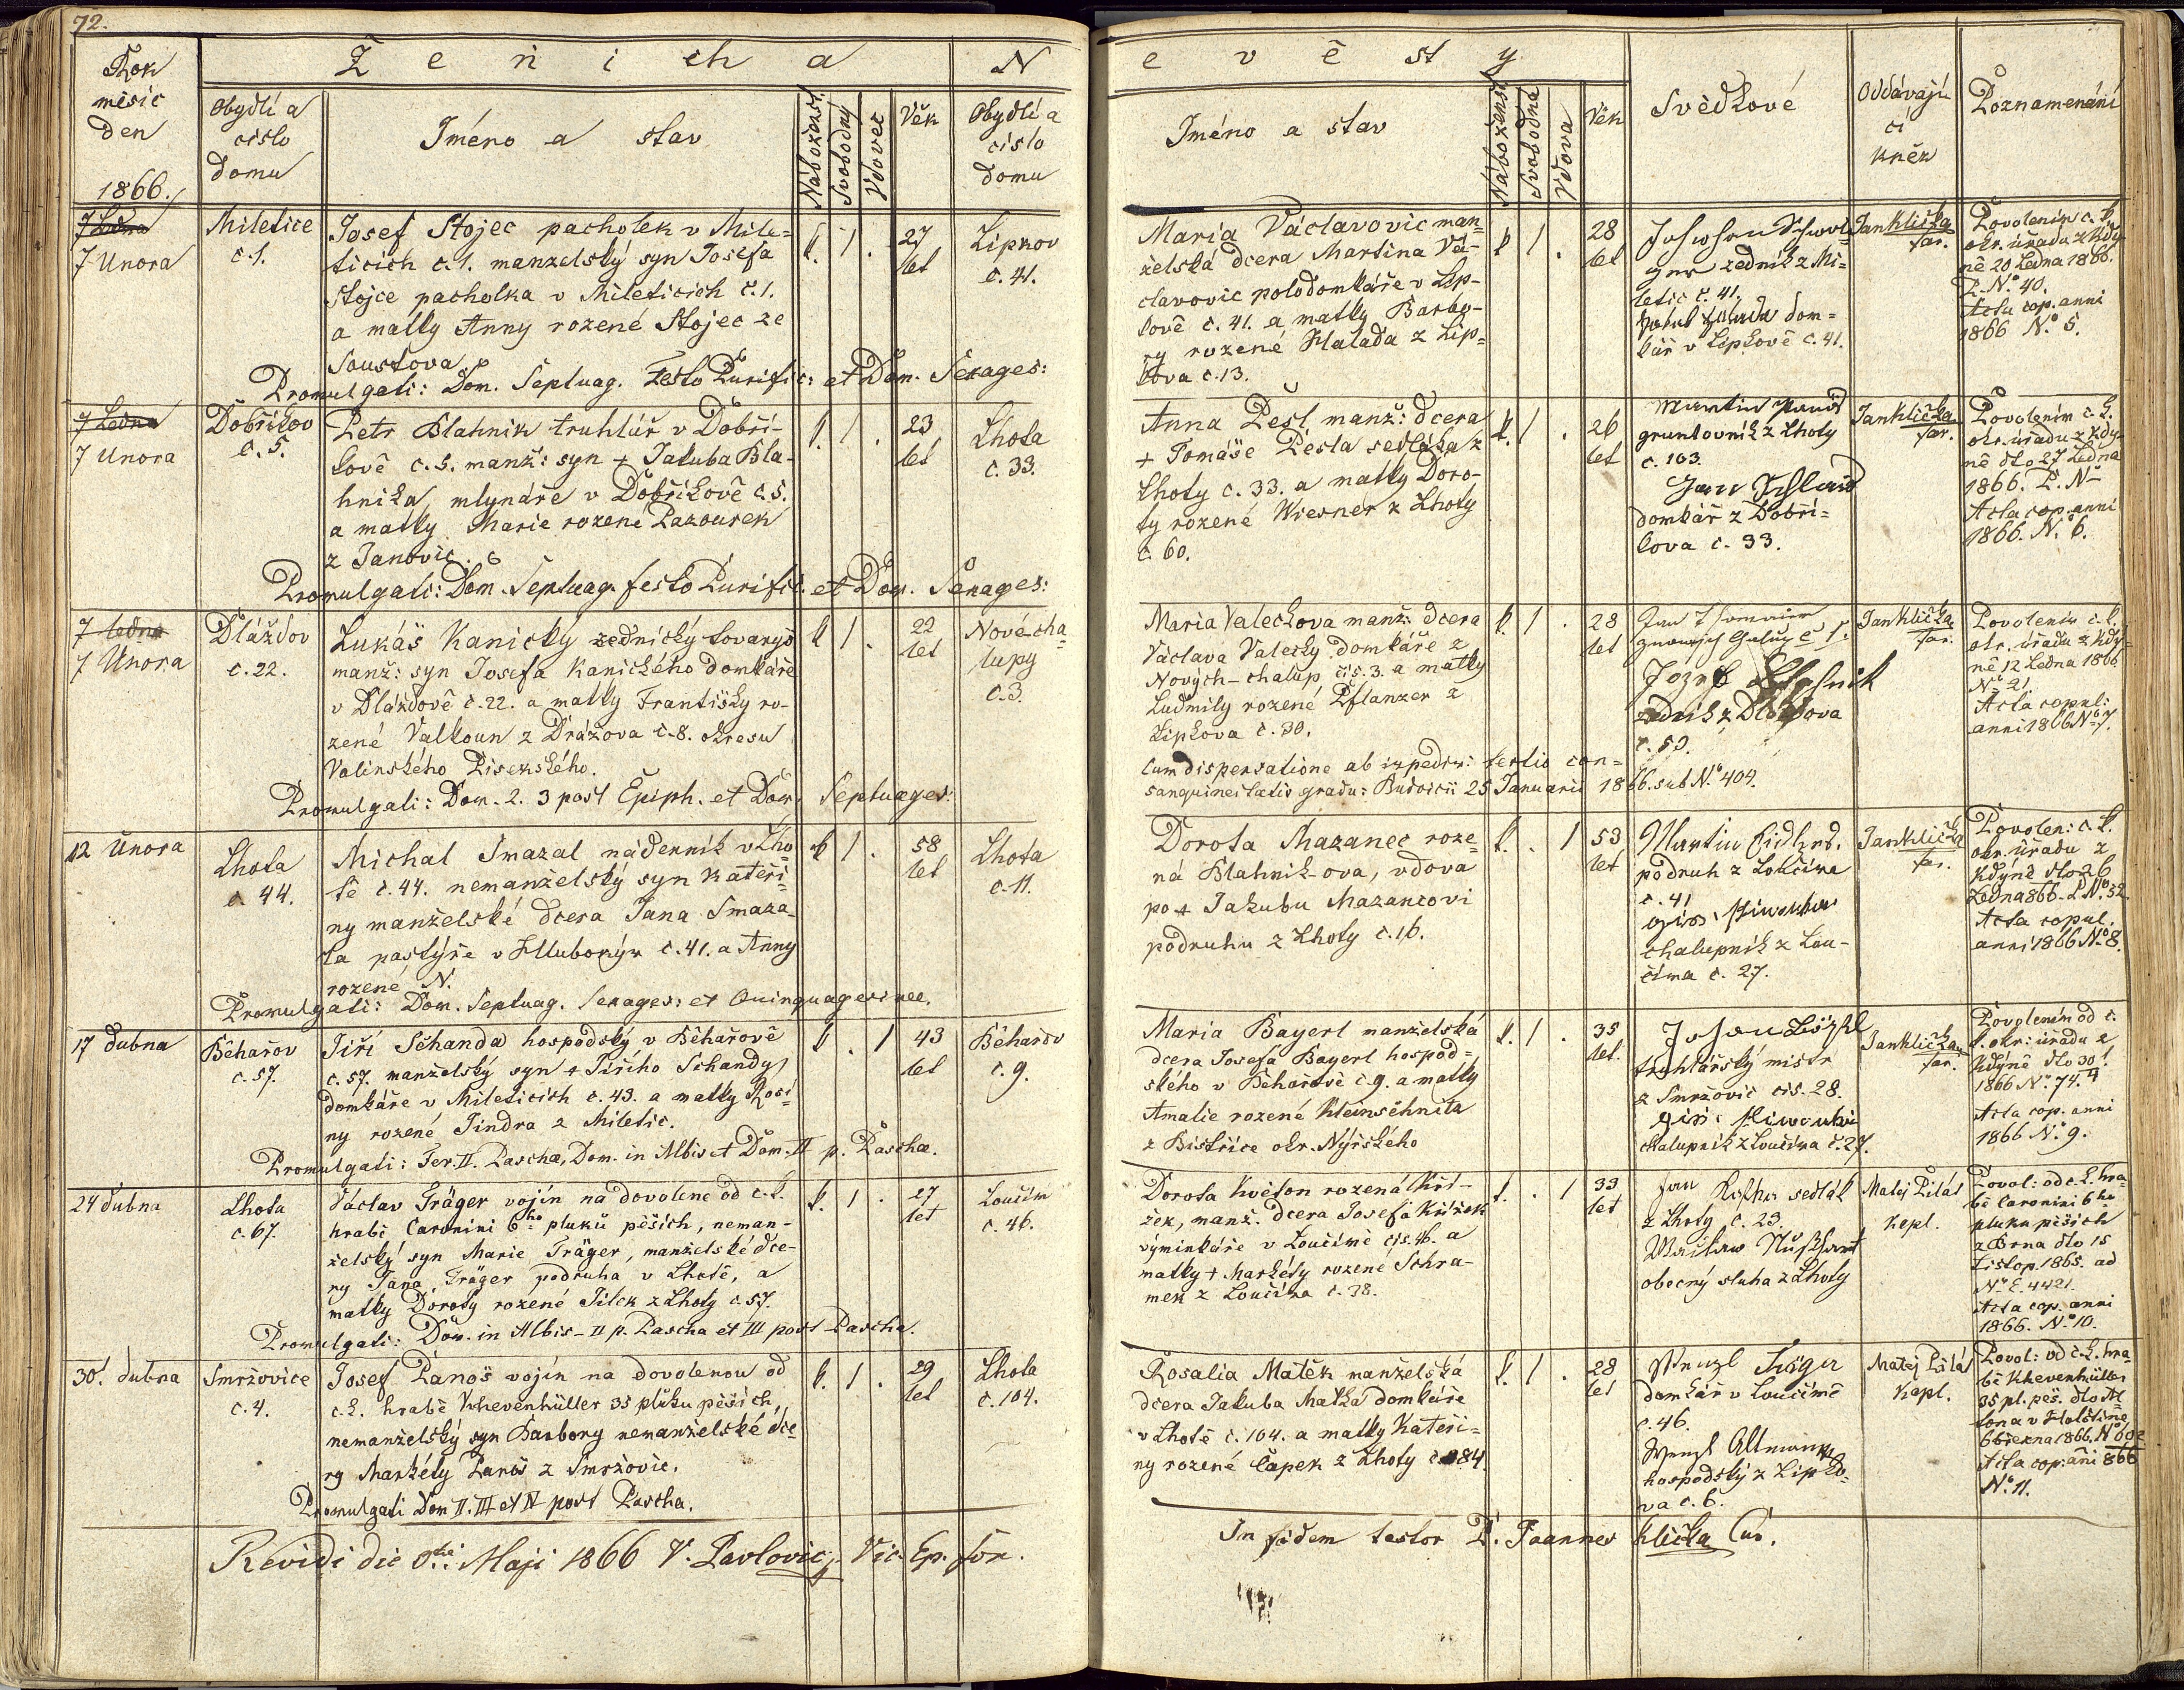 72.
Rok
měsíc
den
1866.
Ženicha
Obydlí a
císlo
domu
Jméno a stav
Náboženst.
Svobodný
Vdovec
Věk
N
Obydlí a
císlo
domu
evěsty
Jméno a stav
Náboženst.
Svobodná
Vdova
Věk
Svědkové
Oddávají
cí
kněz
Poznamenání
7 Ledna
7 Unora
Miletice
č. 1.
Josef Stojec pacholek v Mile-
ticích č. 1. manzelský syn Josefa
Stojce pacholka v Mileticích č. 1.
a matky Anny rozené Stojec ze
Soustova
Promulgati: Dom. Septuag. Festo Purific: et Dom. Sexages:
k. 1 .
27
let
Lipkov
č. 41.
Maria Václavovic man-
želská dcera Martina Vá-
clavovic polodomkáře v Lip-
kově č. 41. a matky Barbo-
ry rozené Halada z Lip-
kova č. 13.
k 1 .
28
let
zedník z Mi-
letic č. 41.
dom-
kář v Lipkově č. 41.
Jan Klička
far.
Povolením c. k.
okr. úřadu z Kdy-
ně 20 Ledna 1866.
P. No 40.
Acta cop. anni
1866 No 5.
7 Ledna
7 Unora
Dobřikov
č. 5.
Petr Blahnik truhlář v Dobři-
kově č. 5. manž: syn + Jakuba Bla-
hnika mlynáře v Dobříkově č. 5.
a matky Marie rozené Pazourek
z Janovic.
Promulgati: Dom. Septuag. festo Purific. et Dom. Sexages:
k. 1 .
23
let
Lhota
č. 33.
Anna Pešl manž: dcera
+ Tomáše Pešla sedláka z
Lhoty č. 33. a matky Doro-
ty rozené Wiesner z Lhoty
č. 60.
k. 1 .
26
let
Martin
gruntovník z Lhoty
č. 103.
Jan
domkář z Dobři-
kova č. 33.
Jan Klička
far.
Povolením c. k.
okr. úřadu z Kdy-
ně dto 27 Ledna
1866. P. No
Acta cop. anni
1866. No 6.
7 ledna
7 Unora
Dláždov
č. 22.
Lukáš Kanický zednický tovaryš
manž: syn Josefa Kanického domkáře
v Dláždově č. 22. a matky Františky ro-
zené Valkoun z Drážova č. 8. okresu
Volinského Pisekského.
Promulgati: Dom. 2. 3 post Epiph. et Dom. Septuages:
k 1 .
22
let
Nové cha-
lupy
č. 3.
Maria Valeckova manž: dcera
Václava Valecky domkáře z
Nových-chalup čís. 3. a matky
Ludmily rozené Pflanzer z
Lipkova č. 30.
Cum dispensatione ab impedim: tertio con-
sanguineitatis gradu: Budvicii 25 Januarii 1866. sub No 404.
k. 1 .
28
let
Jan
Jozef Blahnik
zedník z Dláždova
č. 50.
Jan Klička
far.
Povolením c. k.
okr. úřadu z Kdy-
ně 12 Ledna 1866
No 21.
Acta copul:
anni 1866 No 7.
12 Unora
Lhota
č. 44.
Michal Smazal nádenník v Lho-
tě č. 44. nemanželský syn Kateři-
ny manželské dcera Jana Smaza-
la pastýře v Hlubokým č. 41. a Anny
rozené N.
Promulgati: Dom. Septuag. Sexages: et Quinquagesimae.
k 1 .
58
let
Lhota
č. 11.
Dorota Mazanec roze-
ná Blahnik-ova, vdova
po + Jakubu Mazancovi
podruhu z Lhoty č. 16.
k. . 1
53
let
Martin
podruh z Loučima
č. 41
chalupnik z Lou-
čima č. 27.
Jan Klička
far.
Povolen: c. k.
okr. úřadu z
Kdýně dto 26
Ledna 866. P. No 52
Acta copul.
anni 1866 No 8.
17 dubna
Běhařov
č. 57.
Jiří Sčhanda hospodský v Běhařově
č. 57. manželský syn + Jiřího Schandy
domkáře v Mileticích č. 43. a matky Rosi-
ny rozené Jindra z Miletic.
Promulgati: Fer. II. Paschae, Dom. in Albis et Dom. II p. Paschae.
k . 1
43
let
Běhařov
č. 9.
Maria Bayerl manželská
dcera Josefa Bayerl hospod-
ského v Běhařově č. 9. a matky
Amalie rozené Kleinsčhnitz
z Bistřice okr. Nýrského
k. 1 .
35
let.
truhlářský mistr
z Smržovic čis. 28.
chalupnik z Loučima č. 27.
Jan Klička
far.
Povolením od c.
k. okr: úřadu z
Kdýně dto 30/4
1866 No 74.
Acta cop. anni
1866 No 9.
24 dubna
Lhota
č. 67.
Václav Träger vojín na dovolené od c. k.
hrabě Coronini 6ho pluku pěších, neman-
želský syn Marie Träger, manželské dce-
ry Jana Träger podruha v Lhotě, a
matky Doroty rozené Jilek z Lhoty č. 57.
Promulgati: Dom. in Albis - II p. Pascha et III post Pascha.
k. 1 .
27
let
Loučim
č. 46.
Dorota Květon rozená Kří-
žek, manž. dcera Josefa Křížek
výminkáře v Loučimě čís. 46. a
matky + Markéty rozené Schra-
mek z Loučima č. 38.
k. . 1
33
let
Jan sedlák
z Lhoty č. 23.
obecný sluha z Lhoty
Matěj Pilát
Kapl.
Povol: od c. k. hra-
bě Coronini 6ho
pluku pěších
z Brna dto 15
Listop. 1865. ad
No E. 4421.
Acta cop. anni
1866. No 10.
30. dubna
Smržovice
č. 4.
Josef Panoš vojín na dovolenou od
c. k. hrabě Khevenhüller 35 pluku pěších,
nemanželský syn Barbory nemanželské dce-
ry Markéty Panoš z Smržovic.
Promulgati Dom II. III et IV post Pascha.
k. 1 .
29
let
Lhota
č. 104.
Rosalia Matěk manželská
dcera Jakuba Matka domkáře
v Lhotě č. 104. a matky Kateři-
ny rozené Čapek z Lhoty č. 84.
k. 1 .
28
let
Wenzl
domkář v Loučimě
č. 46.
Wenzl Altmann
hospodský z Lipko-
va č. 6.
Matěj Pilát
Kapl.
Povol: od c. k. hra-
bě Khevenhüller
35 pl. pěš. dto Al-
tona v Holštíně
6 března 1866. No
Acta cop. ani 866
No 11.
Revidi die Maji 1866 V. Pavlovic, Vic. Ep. for.
In fidem testor P. Joannes Klička Cur.